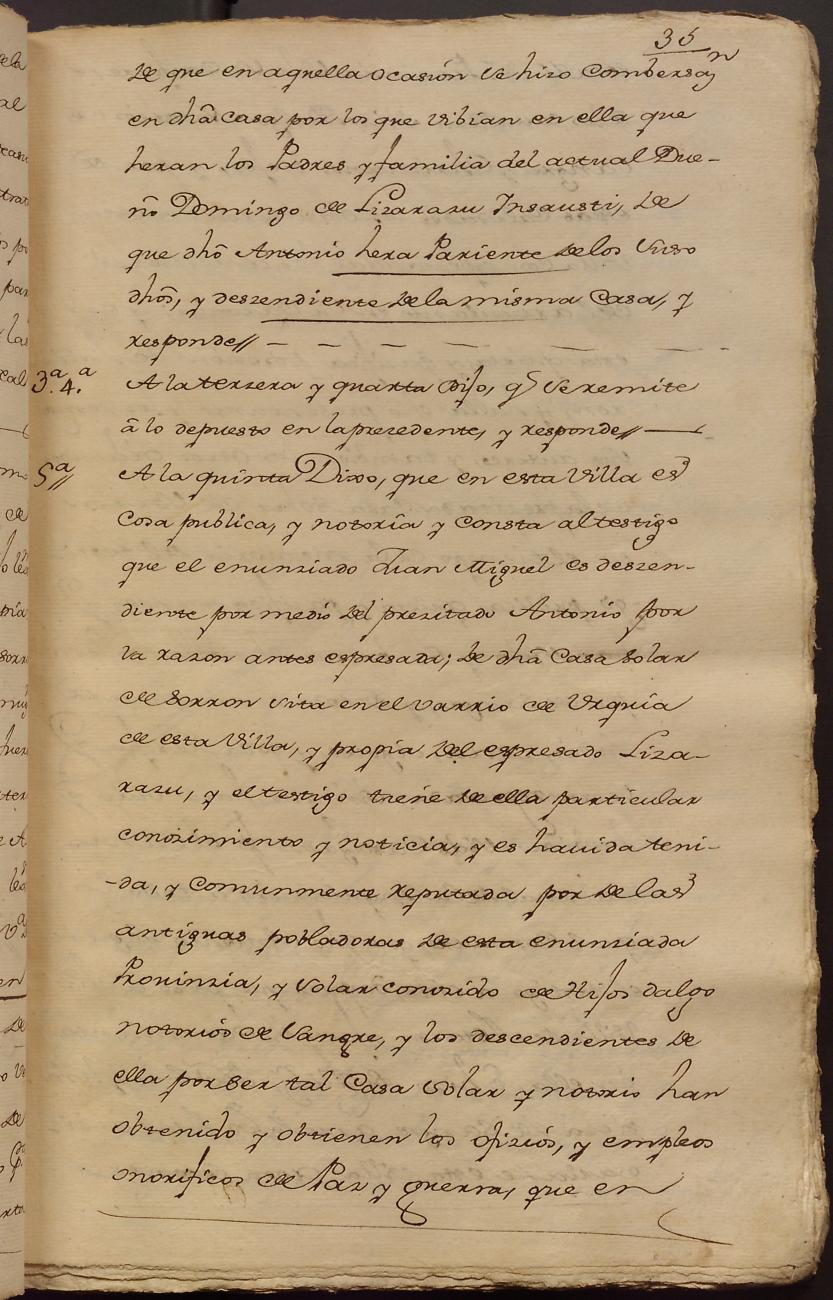 35
de que en aquella ocasión se hizo Combersaⁿ
en dhã casa por los que vibian en ella que
heran los Padres y familia del actual Due-
ño Domingo de Lizarazu Insausti, de
que dhõ Antonio hera Pariente de los suso
dhõs, y deszendiente de la misma Casa, y
responde//
3.ª 4.ª A la terzera y quarta Dijo, q̃ se remite
â lo depuesto en la prezedente, y responde//
5ª// A la quinta Dixo, que en esta Villa es
Cosa publica, y notoria y consta al testigo
que el enunziado Juan Miguel es deszen-
diente por medio del prezitado Antonio por
la razon antes espresada; de dhã Casa Solar
de Sorron sita en el varrio de Urquia
de esta Villa, y propia del espresado Liza-
razu, y el testigo tiene de ella particular
conozimiento y noticia, y es hauida teni-
-da, y comunmente reputada por de las
antiguas pobladoras de esta enunziada
Prouinzia, y Solar conozido de Hijos dalgo
notorios de Sangre, y los descendientes de
ella por ser tal Casa Solar y notorio han
obtenido y obtienen los ofizios, y empleos
onorificos de Paz y guerra, que en